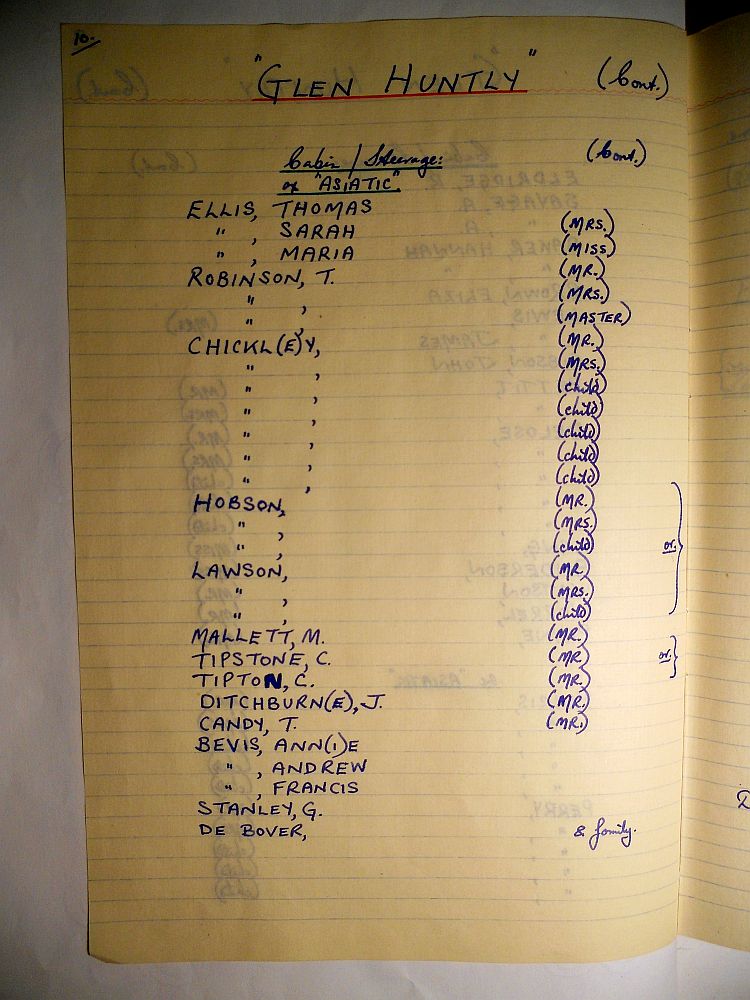 10.
"GLEN HUNTLY" (Cont.)
Cabin / Steerage: (Cont.)
ex "ASIATIC".
ELLIS, THOMAS
" , SARAH (MRS.)
" , MARIA (MISS)
ROBINSON, T. (MR.)
" , (MRS.)
" , (MASTER)
CHICKL(E)Y, (MR.)
" , (MRS.)
" , (child)
" , (child)
" , (child)
" , (child)
" , (child)
HOBSON, (MR.)
" , (MRS.)
" , (child) or.
LAWSON, (MR.)
" , (MRS.)
" , (child)
MALLETT, M. (MR.)
TIPSTONE, C. (MR.) or.
TIPTON, C. (MR.)
DITCHBURN(E), J. (MR.)
CANDY, T. (MR.)
BEVIS, ANN(I)E
" , ANDREW
" , FRANCIS
STANLEY, G.
DE BOVER, & family.